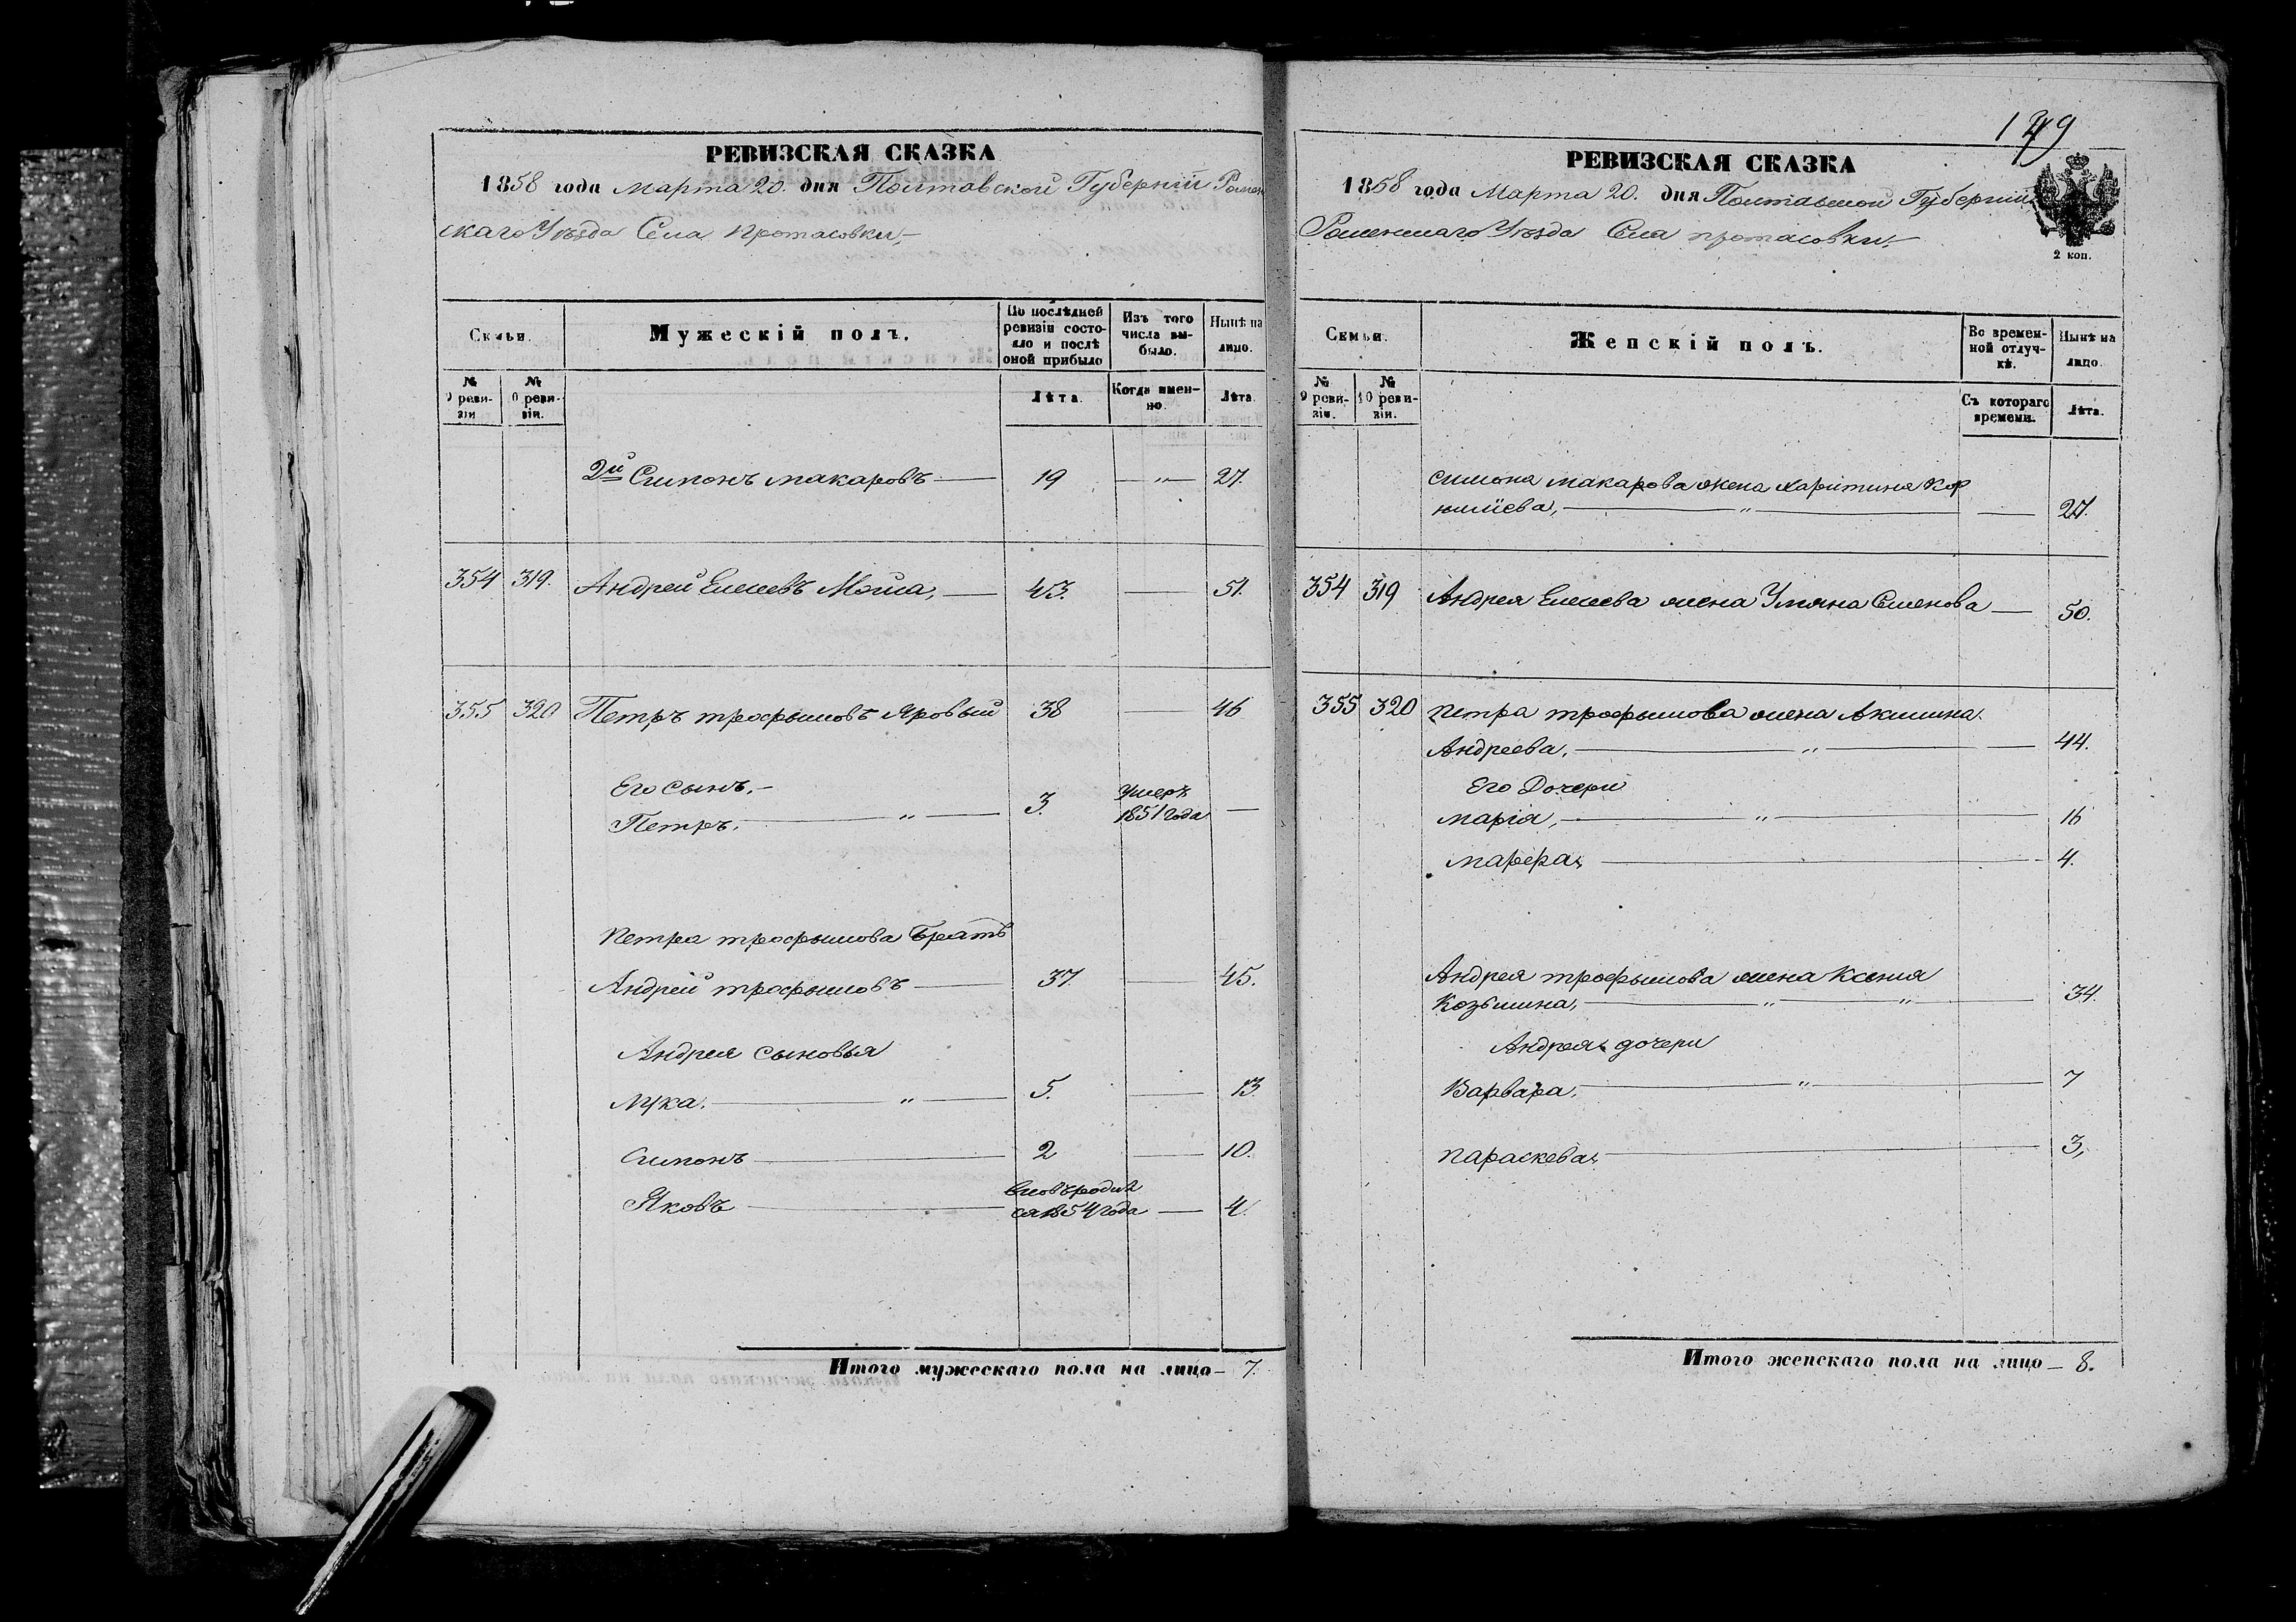 РЕВИЗСКАЯ СКАЗКА
1858 года Марта 20. дня Полтавской Губернiи Ромен
скаго Уѣзда Села Протасовки,
Семьи.
Мужескiй полъ.
По послѣдней ревизiи состояло и послѣ оной прибыло
Изъ того числа выбыло.
Нынѣ на лицо.
№ 9 ревизiи
№ 10 ревизiи.
Лѣта.
Когда именно.
Лѣта.
2й Симонъ Макаровъ — 19 — " — 27.
354 319. Андрей Елисеевъ — 43. — 51.
355 320 Петръ Трофымовъ Яровый 38 — 46
Его сынъ,
Петръ. — " — 3. Умеръ 1851 года —
Петра Трофымова Братъ
Андрей Трофымовъ — 37. — 45.
Андрея сыновья
Лука. — " — 5. — 13.
Симонъ — 2 — 10.
Яковъ — вновь родился 1854 года — 4.
Итого мужескаго пола на лицо — 7.
149
РЕВИЗСКАЯ СКАЗКА
1858 года Марта 20. дня Полтавской Губернiи
Роменскаго Уѣзда Села Протасовки,
2 коп.
Семьи.
Женскiй полъ.
Во временной отлучкѣ.
Нынѣ на лицо.
№ 9 ревизiи.
№ 10 ревизiи.
Съ котораго времени.
Лѣта.
Симона Макарова жена Харитина Кор
нилiева, — " — 27.
354 319 Андрея Елисеева жена Уляна Семенова — 50.
355 320 Петра Трофымова жена Акилина
Андреева, — " — 44.
Его Дочери
Марiя, — " — 16
Марфа, — 4.
Андрея Трофымова жена Ксения
Козьмина, — " — " — 34.
Андрея дочери
Варвара, — " — 7
Параскева, — 3,
Итого женскаго пола на лицо — 8.